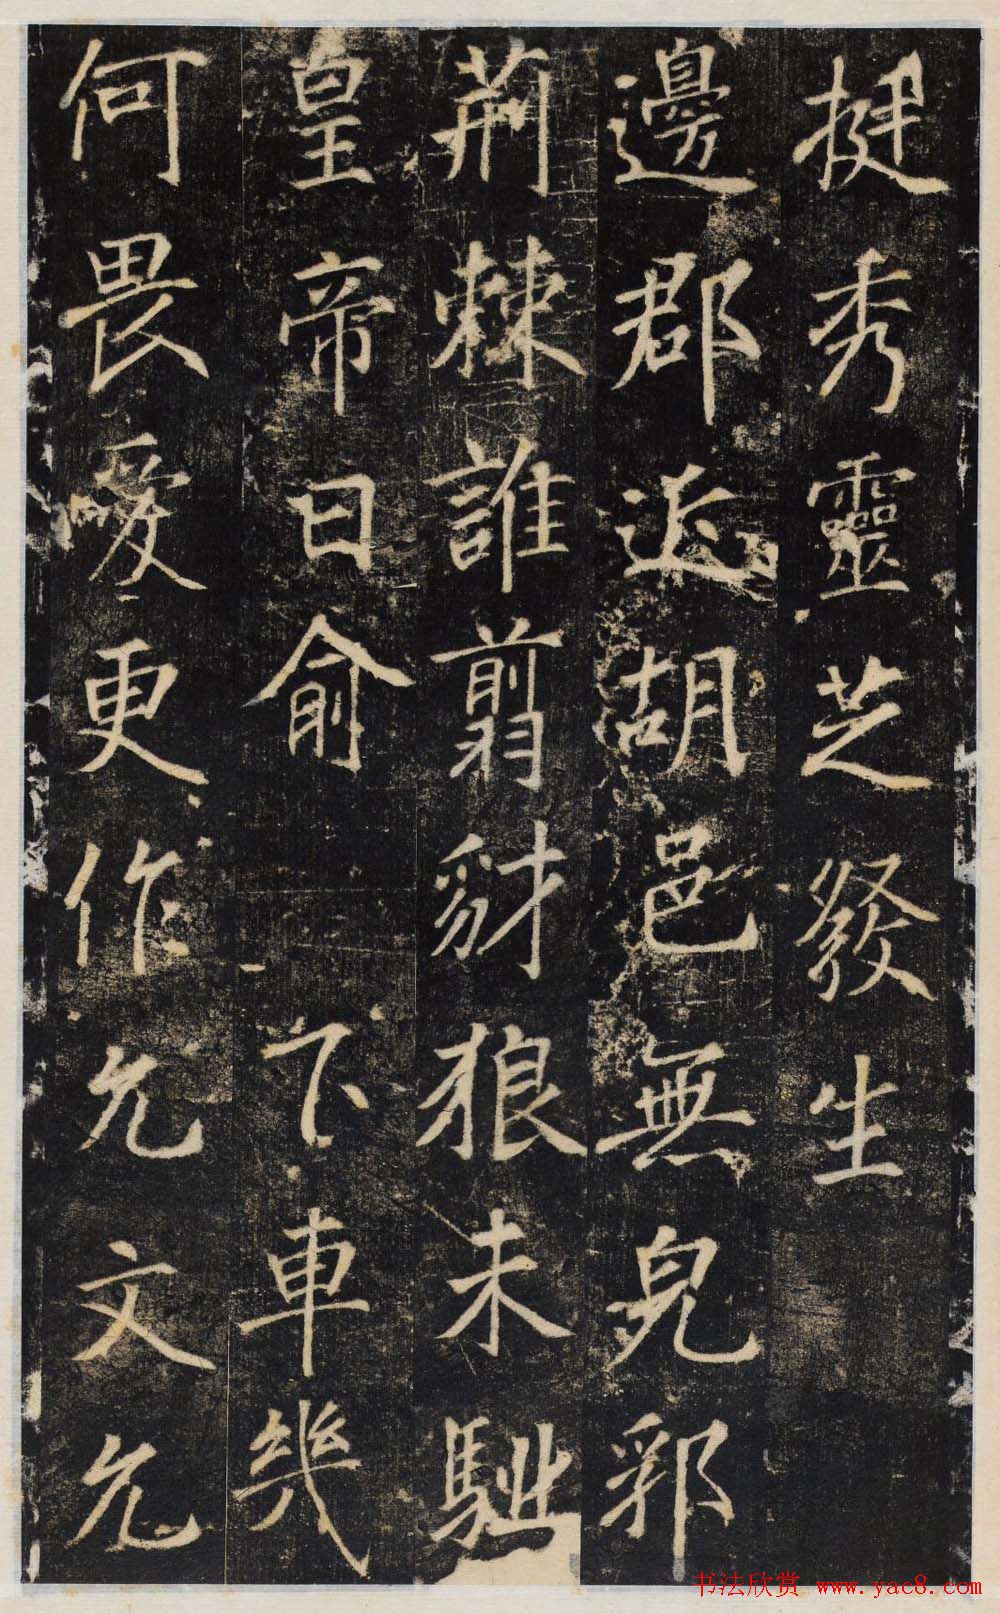 挺秀靈芝發生
邊郡近胡邑無皃郛
荊棘誰翦豺狼未駈
皇帝曰俞 下車幾
何畏愛更作允文允
书法欣赏 www.yac8.com